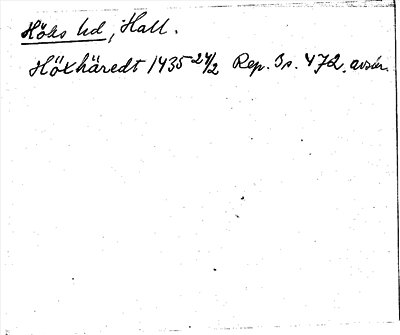 Höks hd, Hall.
Höxhäredt 1435 24/2 Rep. 3 s. 472. avskr.